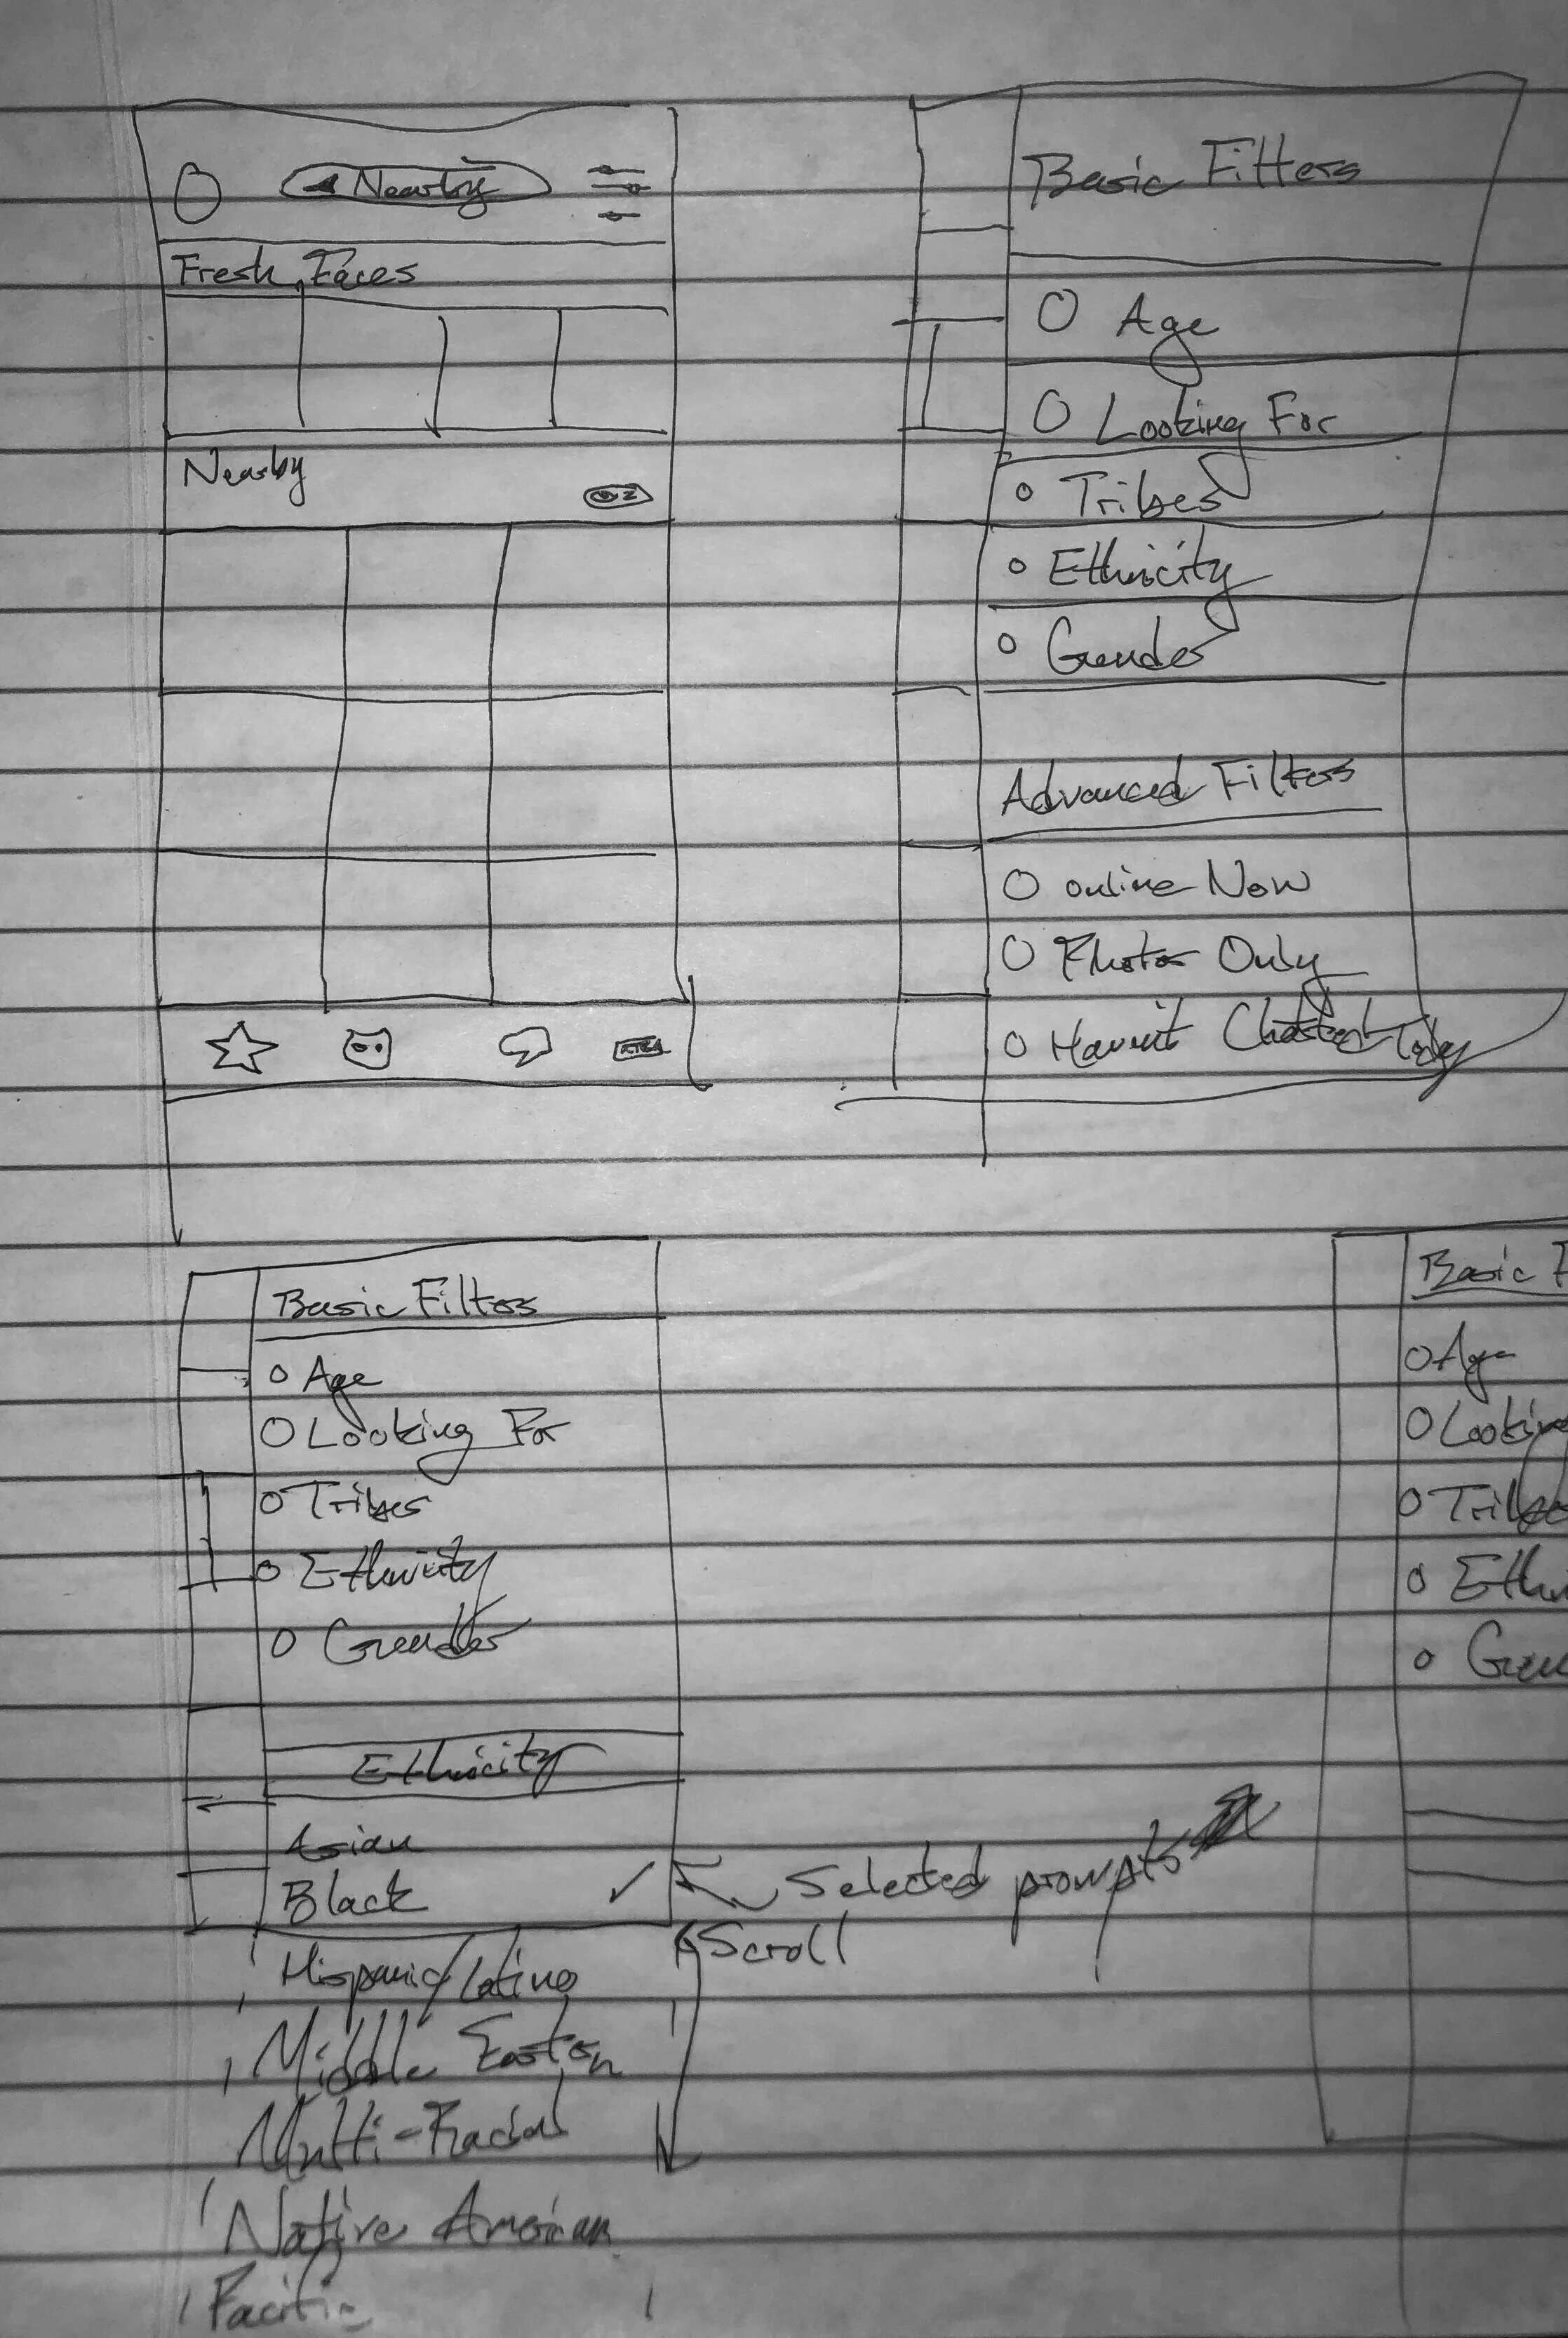 Nearby
Fresh Faces
Nearby
Basic Filters
Age
Looking For
Tribes
Ethnicity
Gender
Advanced Filters
Online Now
Photos Only
Haven't Chatted Today
Basic Filters
Age
Looking For
Tribes
Ethnicity
Gender
Ethnicity
Asian
Black ✓
Selected prompts
Scroll
Hispanic/Latino
Middle Eastern
Multi-Racial
Native American
Basic F
Age
Lookin
Tribe
Ethni
Gen